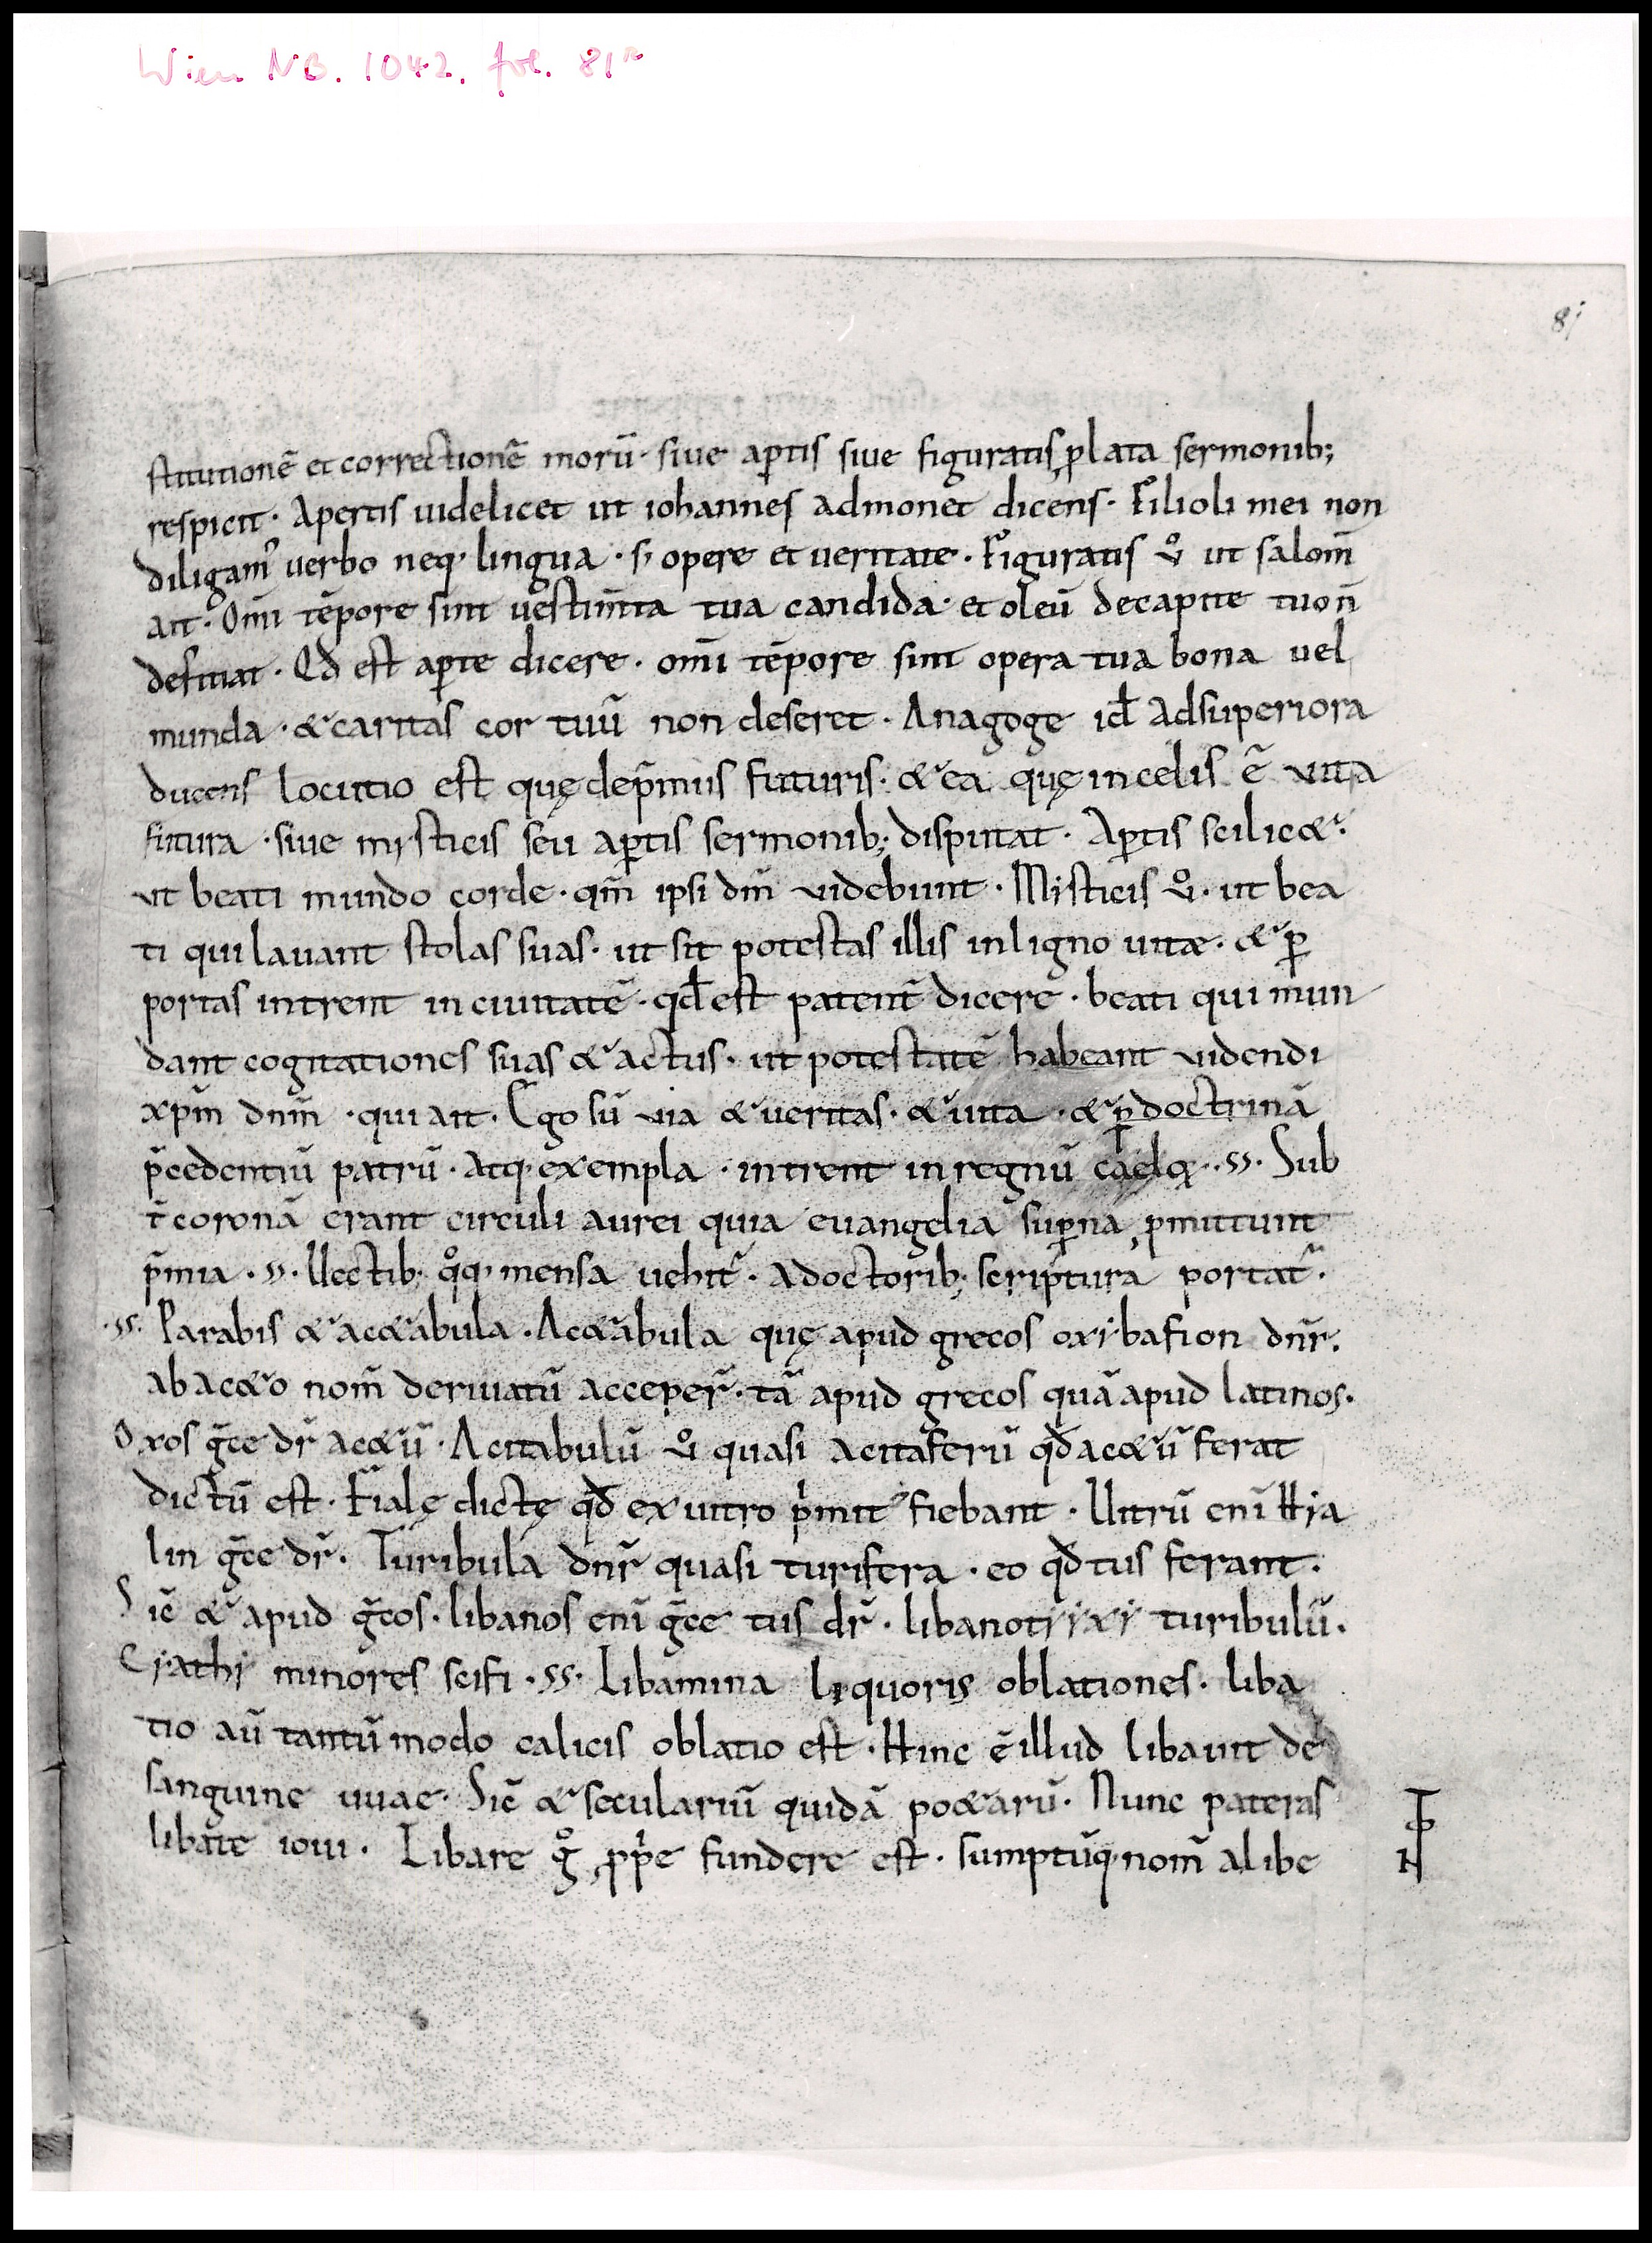 Wien NB. 1042. fol. 81r
81
stitutionē et correctionē morū· siue aꝑtis siue figuratis ꝓlata sermonib;
respicit· Apertis uidelicet ut iohannes admonet dicens· Filioli mei non
diligam᾽ uerbo neq· lingua · s; opere et ueritate · Figuratis u᷎o ut salom̄
ait· Om̄i tēpore sint uestim̄ta tua candida· et oleū decapite tuo n̄
deficiat · Qđ est aꝑte dicere · om̄i tēpore sint opera tua bona uel
munda · & caritas cor tuū non deseret · Anagoge id̄ adsuperiora
ducens locutio est quę dep̄miis futuris· & ea quę incelis ē uita
futura · siue mysticis seu aꝑtis sermonib; disputat · Aꝑtis scilic&·
ut beati mundo corde · qm̄ ipsi dm̄ uidebunt · Misticis uͦ · ut bea
ti qui lauant stolas suas· ut sit potestas illis inligno uitæ · & ꝑ
portas intrent in ciuitatē · qđ est patent̄ dicere · beati qui mun
dant cogitationes suas & actus · ut potestatē habeant uidendi
xp̄m dnm̄ · qui ait · Ego sū uia & ueritas · & uita · & ꝑ doctrinā
p̄cedentiū patrū · atq· exempla · intrent in regnū caeloꝝ ·ss· Sub
t̄ coronā erant circuli aurei quia euangelia suꝑna ꝓmittunt
p̄mia · ss · Uectib; qͦq· mensa uehit᷑ · adoctorib; scriptura portat᷑ ·
·ss· Parabis & ac&abula · Ac&abula quę apud grecos oxibafion dn̄r·
ab ac&o nom̄ deriuatū acceper̄ · tā apud grecos quā apud latinos·
Oxos ḡce dr̄ ac&ū · Acitabulū uͦ quasi acitaferū qđ ac&ū ferat
dictū est · Fialę dictę qđ ex uitro p͛mit᾽ fiebant · Uitrū eni᷑ Hya
lin ḡce dr̄ · Turibula dn̄r quasi turifera · eo qđ tus ferant ·
Sic̄ & apud ḡcos · libanos eni᷑ ḡce tus dr̄ · libanotiixi turibulū ·
Cyathi minores scifi · ss· Libamina liquoris oblationes · liba
tio aū tantū modo calicis oblatio est · Hinc ē illud libauit de
sanguine uuae · Sic̄ & seculariū quidā po&arū · Nunc pateras
libate ioui · Libare gͦ ꝓp͛e fundere est · sumptūq· nom̄ a libe